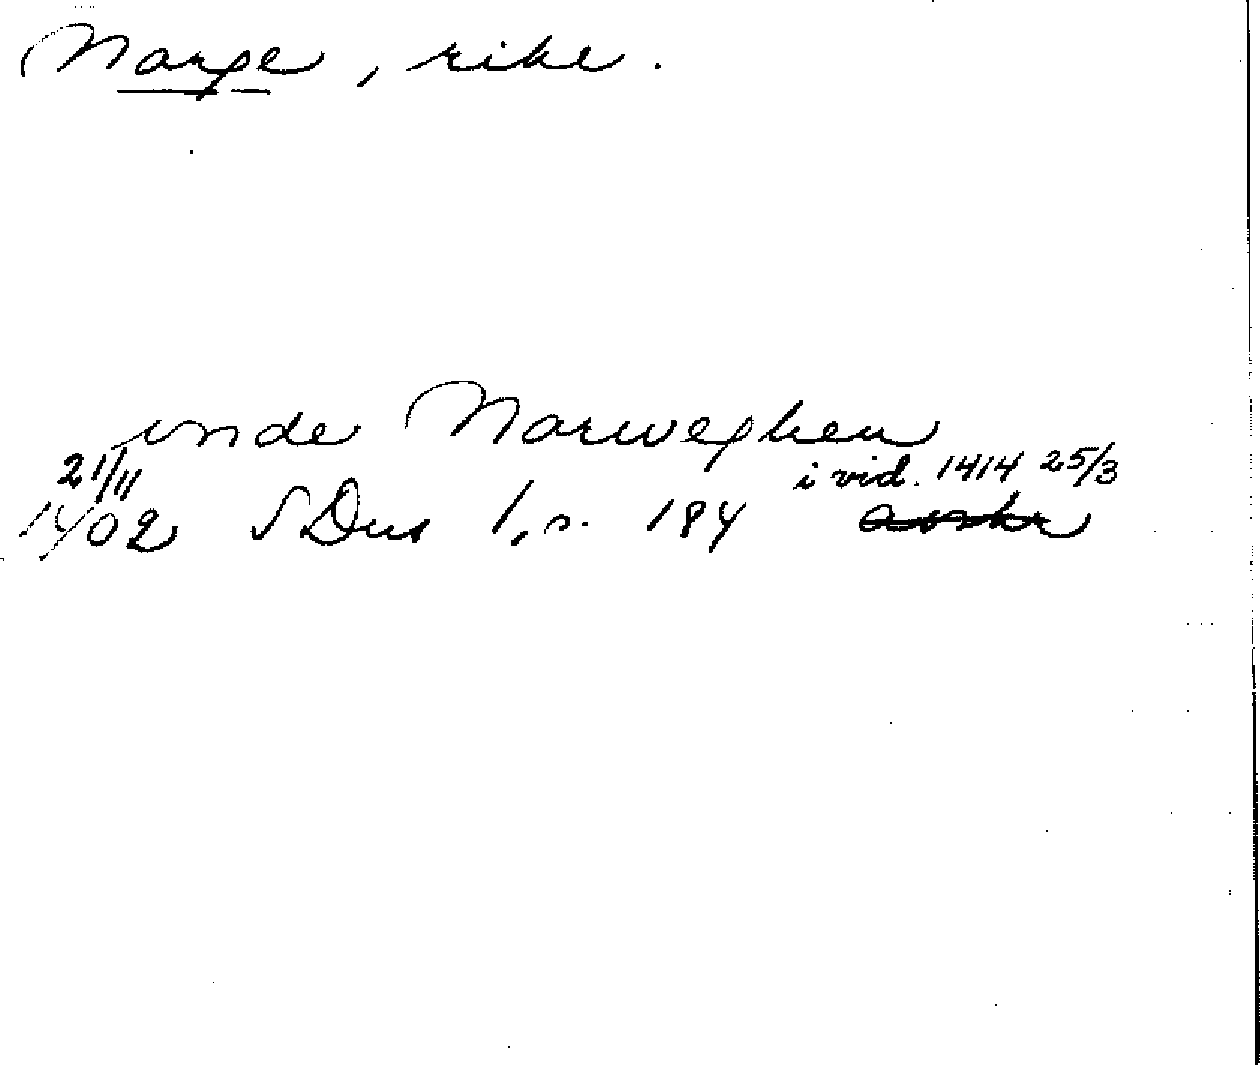 Norge, rike.
unde Norweghen
21/11 i vid. 1414 25/3
1402 SDns 1, s. 184 avskr